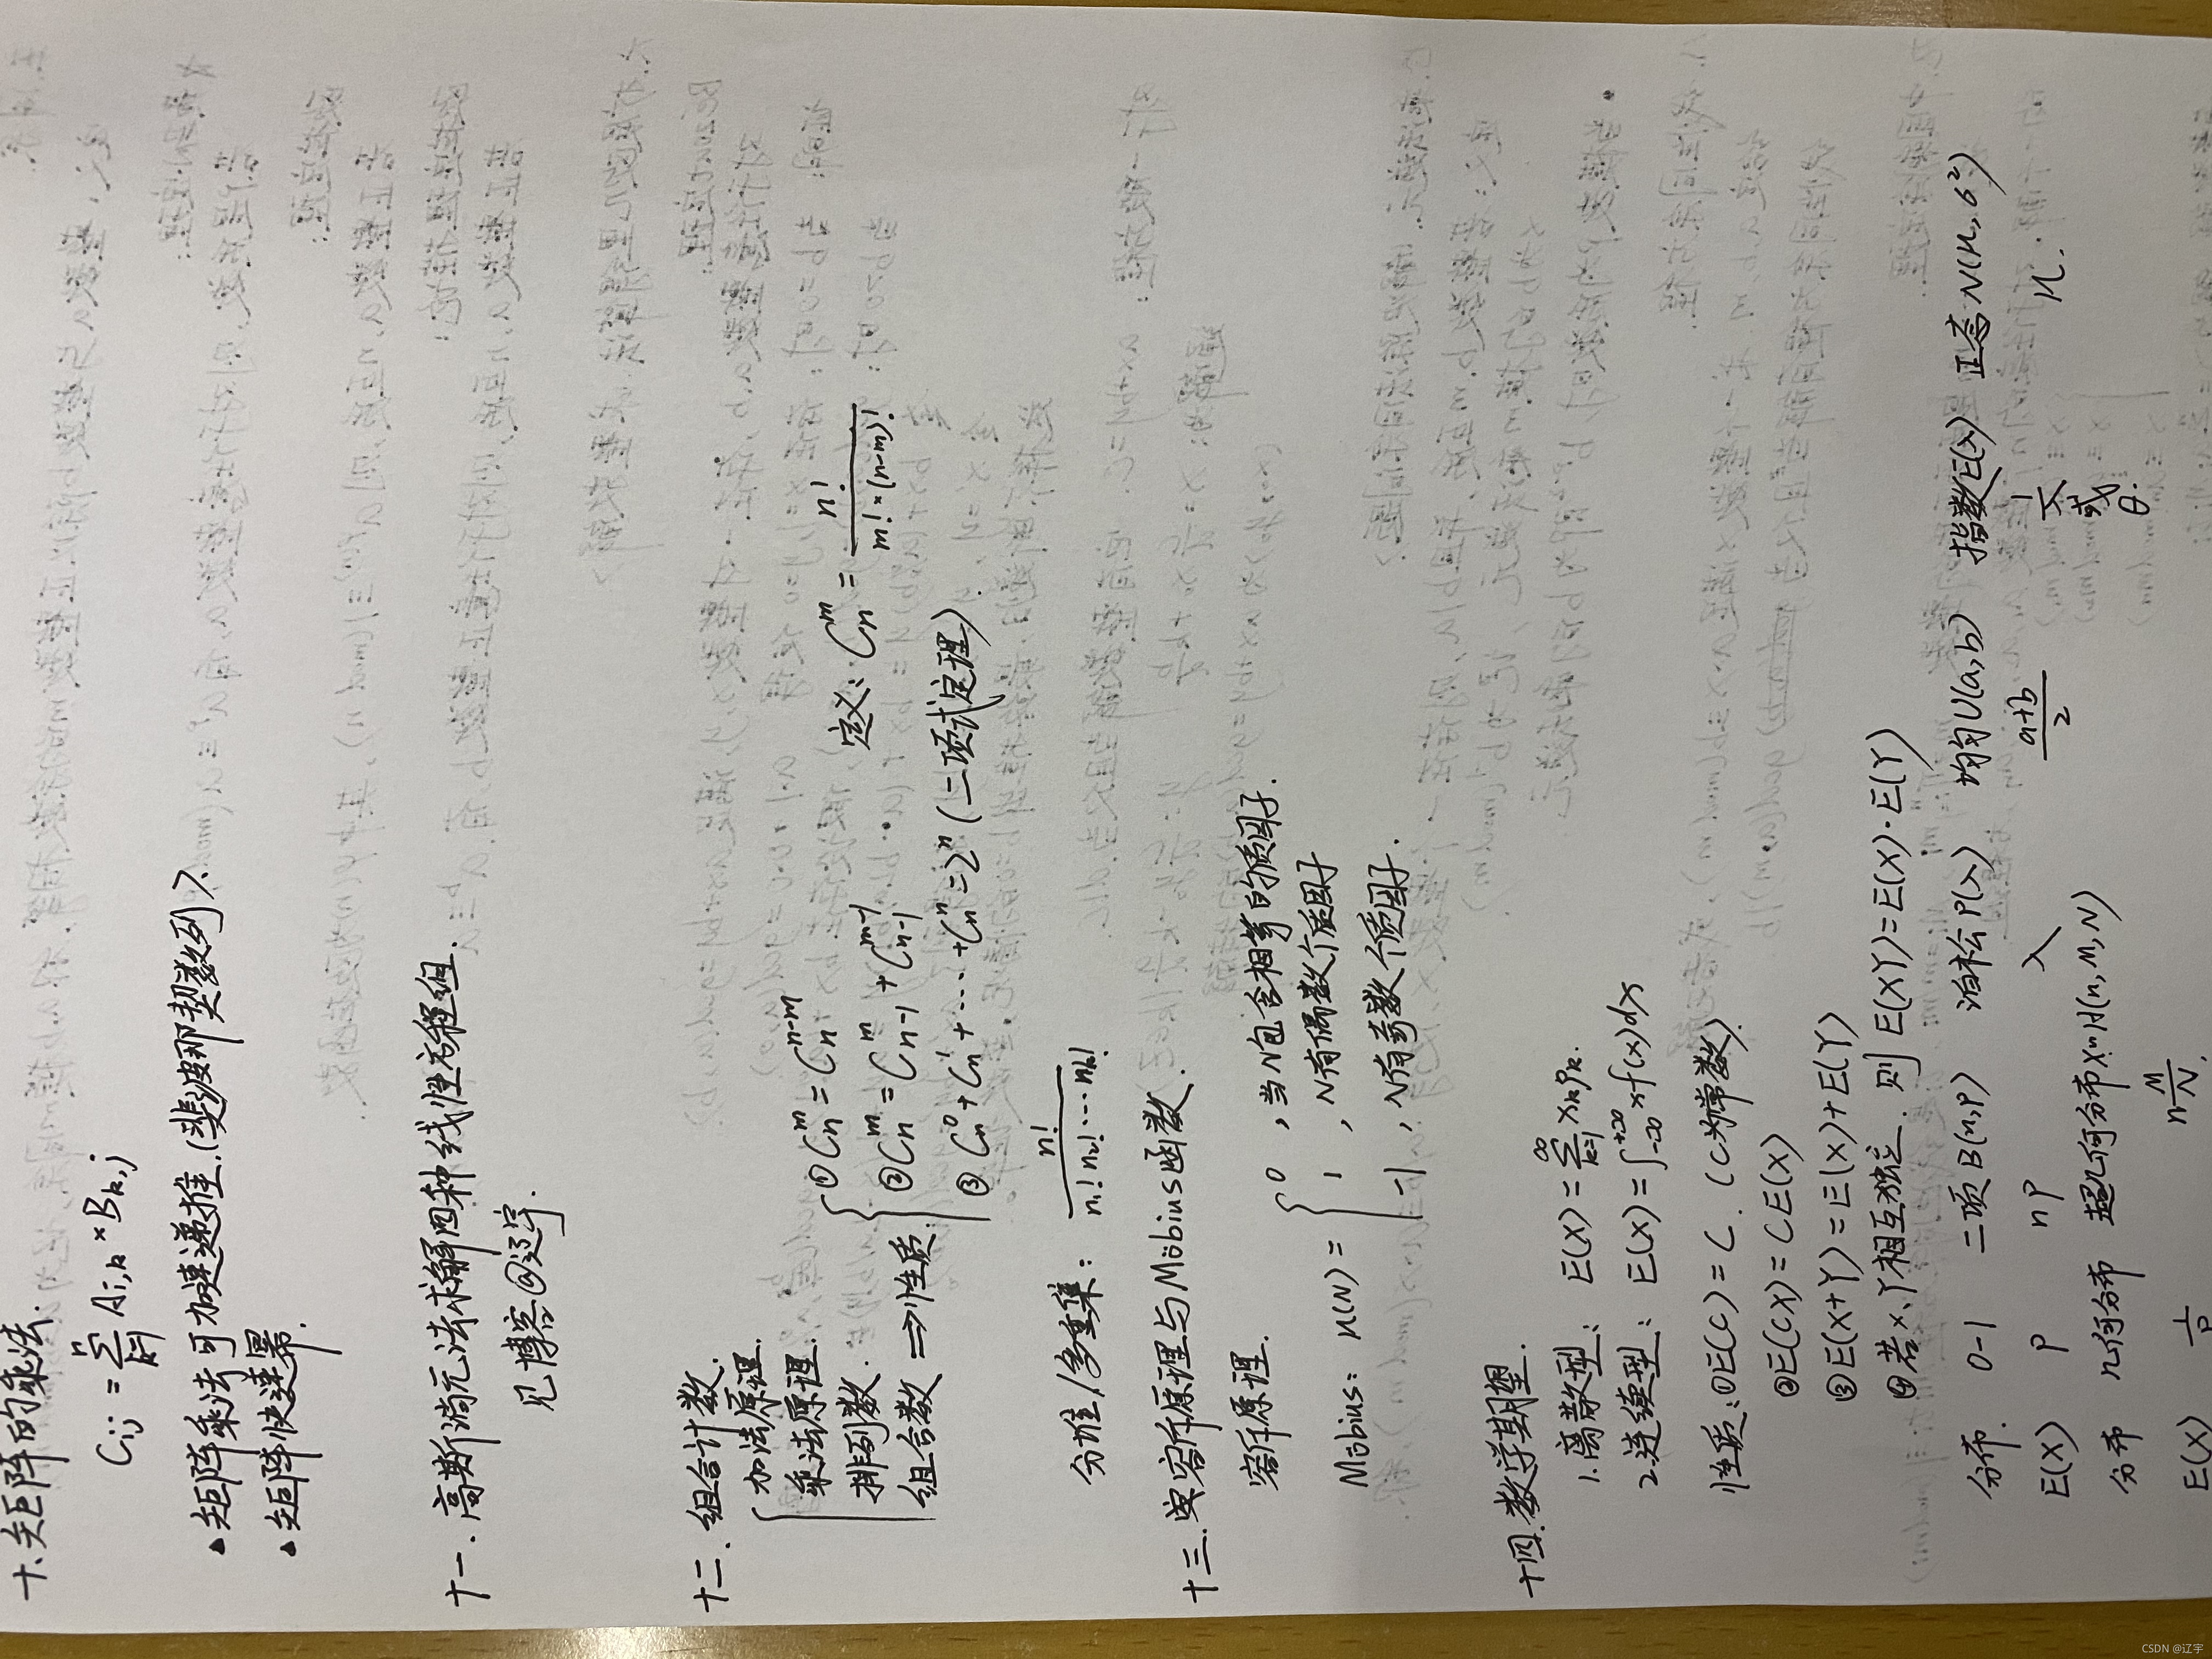 十、矩阵的乘法.
Ci,j = ∑(k=1→n) Ai,k × Bk,j
▲ 矩阵乘法可加速递推.(斐波那契数列).
▲ 矩阵快速幂.
十一. 高斯消元法求解四种线性方程组.
见博客@辽宇.
十二. 组合计数.
加法原理.
乘法原理.
排列数.
组合数 ⇒ 性质
① Cₙᵐ = Cₙⁿ⁻ᵐ
② Cₙᵐ = Cₙ₋₁ᵐ + Cₙ₋₁ᵐ⁻¹
③ Cₙ⁰ + Cₙ¹ + …… + Cₙⁿ = 2ⁿ (二项式定理).
定义: Cₙᵐ = n! / (m! × (n-m)!)
分堆/多重集: n! / (n₁! n₂! … nₖ!)
十三. 容斥原理与Möbius函数.
容斥原理.
Möbius: μ(N) =
0, 当N包含相等的质因子.
1, N有偶数个质因子
-1, N有奇数个质因子.
十四. 数学期望.
1.离散型: E(X) = ∑(k=1→∞) xₖPₖ.
2.连续型: E(X) = ∫₋∞⁺∞ xf(x)dx
性质: ① E(C) = C. (C为常数)
② E(CX) = CE(X)
③ E(X+Y) = E(X)+E(Y)
④ 若X、Y相互独立. 则 E(XY) = E(X)·E(Y)
分布. 0-1 二项B(n,P) 泊松P(λ) 均匀U(a,b) 指数E(λ) 正态N(μ,σ²)
E(X) P nP λ (a+b)/2 1/λ 或 θ. μ.
分布 几何分布 超几何分布X~H(n,M,N)
E(X) 1/p n M/N.
CSDN @辽宇